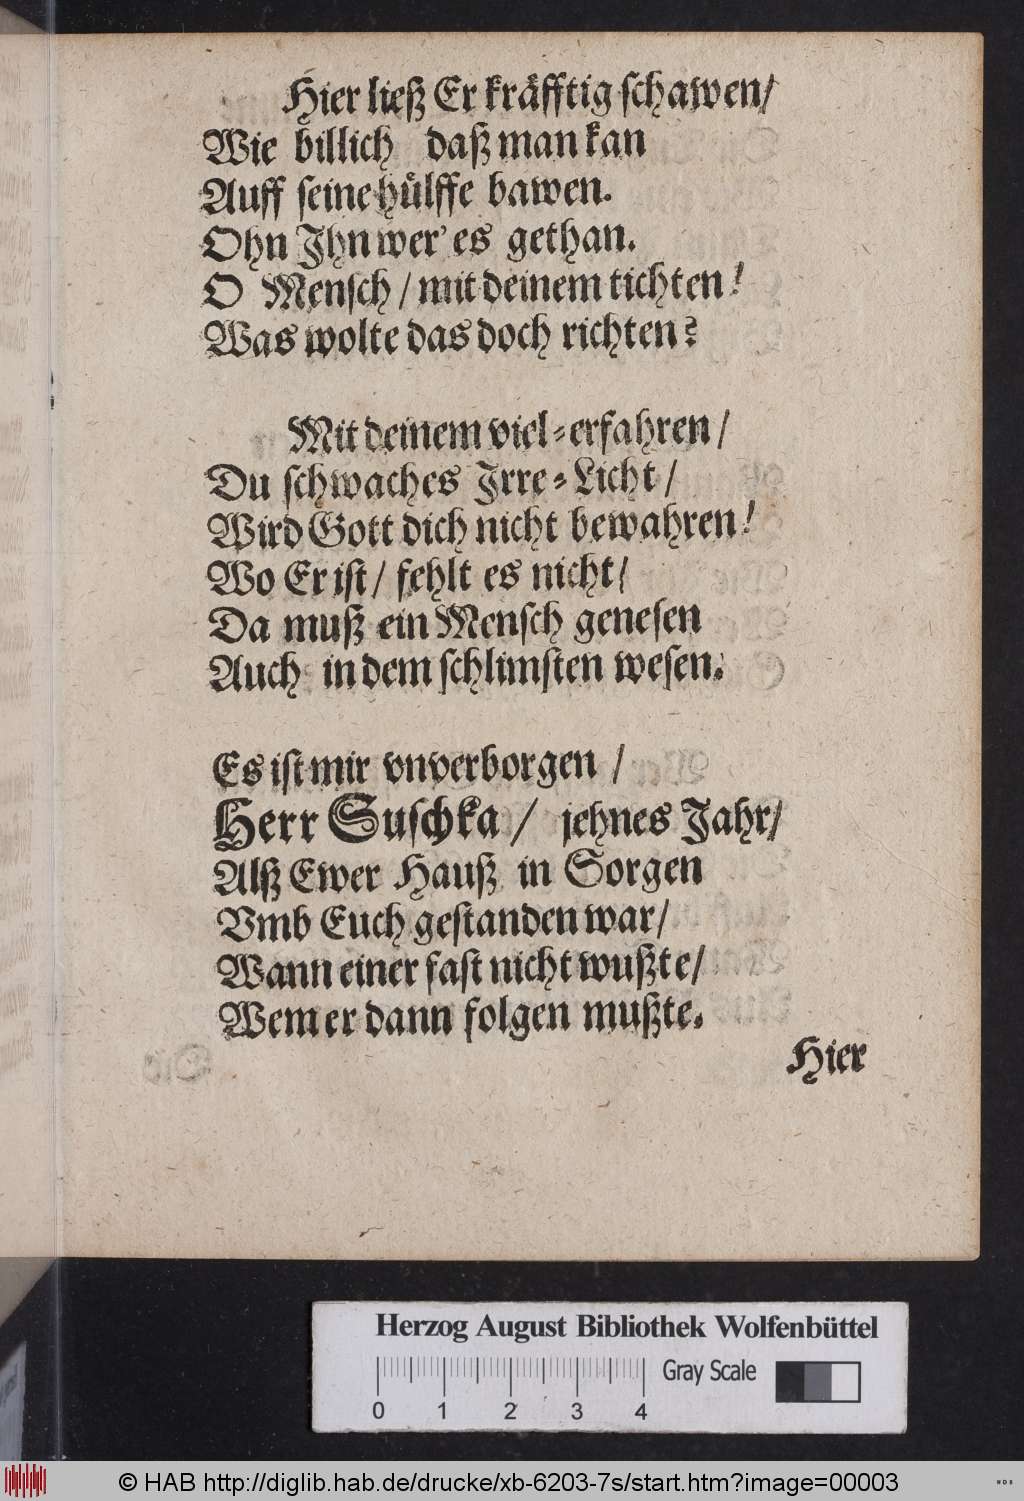 Hier ließ Er kräfftig schawen/
Wie billich daß man kan
Auff seine hülffe bawen.
Ohn Jhn wer' es gethan.
O Mensch / mit deinem tichten!
Was wolte das doch richten?
Mit deinem viel-erfahren /
Du schwaches Jrre-Licht /
Wird Gott dich nicht bewahren!
Wo Er ist / fehlt es nicht /
Da muß ein Mensch genesen
Auch in dem schlimsten wesen.
Es ist mir vnverborgen /
Herr Suschka / jehnes Jahr /
Alß Ewer Hauß in Sorgen
Vmb Euch gestanden war /
Wann einer fast nicht wußte /
Wem er dann folgen mußte.
Hier
Herzog August Bibliothek Wolfenbüttel
Gray Scale
0 1 2 3 4
© HAB http://diglib.hab.de/drucke/xb-6203-7s/start.htm?image=00003